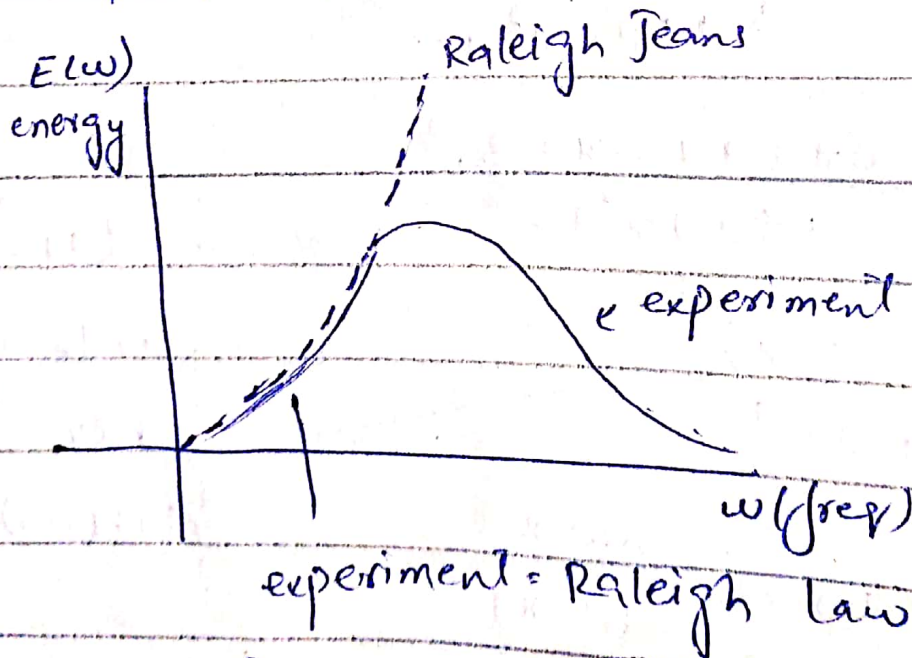 Raleigh Jeans
E(w)
energy
experiment
w (freq)
experiment = Raleigh Law